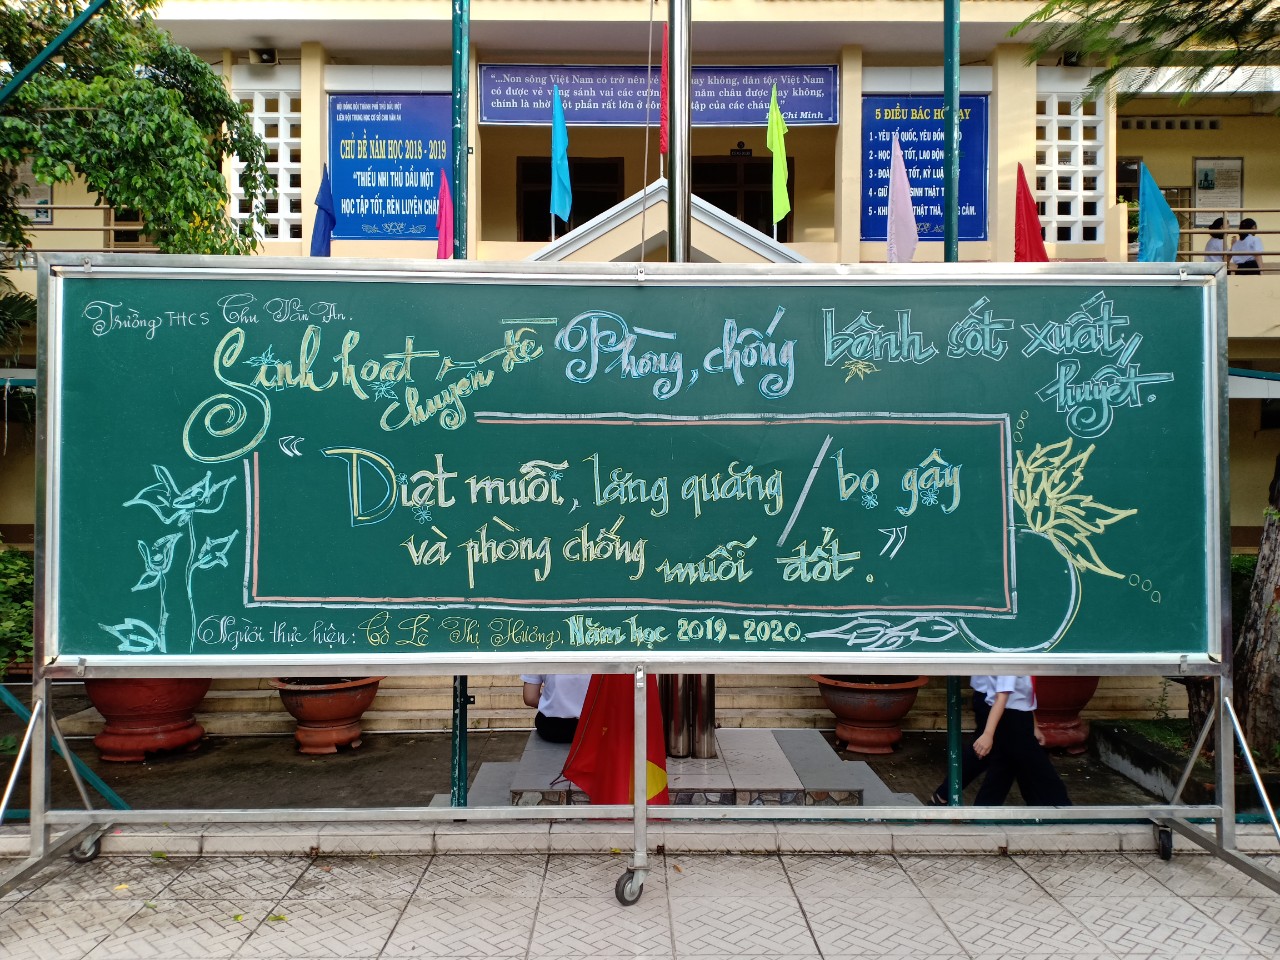 "...Non sông Việt Nam có trở nên vẻ hay không, dân tộc Việt Nam
có được vẻ vang sánh vai các cường năm châu được hay không,
chính là nhờ một phần rất lớn ở công tập của các cháu."
Chí Minh
HỘI ĐỒNG ĐỘI THÀNH PHỐ THỦ DẦU MỘT
LIÊN ĐỘI TRUNG HỌC CƠ SỞ CHU VĂN AN
CHỦ ĐỀ NĂM HỌC 2018 - 2019
"THIẾU NHI THỦ DẦU MỘT
HỌC TẬP TỐT, RÈN LUYỆN CHĂM
5 ĐIỀU BÁC HỒ DẠY
1 - YÊU TỔ QUỐC, YÊU ĐỒNG BÀO
2 - HỌC TẬP TỐT, LAO ĐỘNG
3 - ĐOÀN KẾT TỐT, KỶ LUẬT
4 - GIỮ SINH THẬT
5 - KHIÊM THẬT THÀ, DŨNG CẢM.
Trường THCS Chu Văn An.
Sinh hoạt chuyên đề Phòng, chống bệnh sốt xuất huyết.
"Diệt muỗi, lăng quăng / bọ gậy
và phòng chống muỗi đốt."
Người thực hiện: Cô Lê Thị Hương. Năm học 2019-2020.